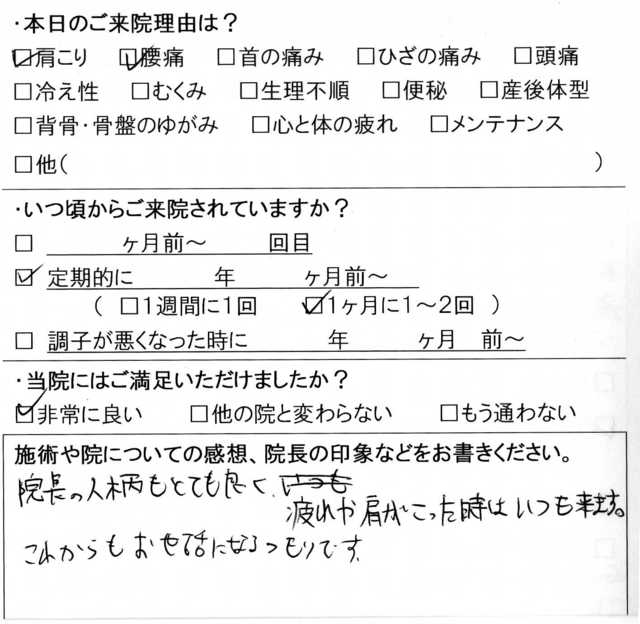 ・本日のご来院理由は？
☑肩こり ☑腰痛 □首の痛み □ひざの痛み □頭痛
□冷え性 □むくみ □生理不順 □便秘 □産後体型
□背骨・骨盤のゆがみ □心と体の疲れ □メンテナンス
□他( )
・いつ頃からご来院されていますか？
□ ヶ月前～ 回目
☑ 定期的に 年 ヶ月前～
( □1週間に1回 ☑1ヶ月に1～2回 )
□ 調子が悪くなった時に 年 ヶ月 前～
・当院にはご満足いただけましたか？
☑非常に良い □他の院と変わらない □もう通わない
施術や院についての感想、院長の印象などをお書きください。
院長の人柄もとても良く、いつも
疲れや肩がこった時はいつも来ます。
これからもお世話になるつもりです。